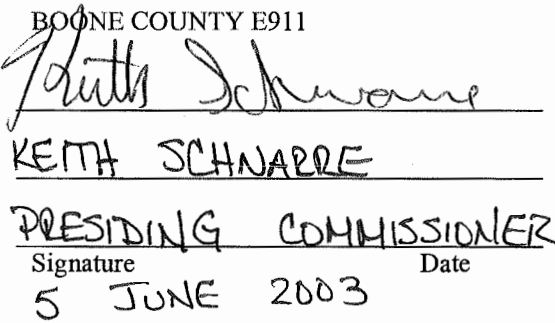 BOONE COUNTY E911
Keith Schnarre
KEITH SCHNARRE
PRESIDING COMMISSIONER
Signature Date
5 JUNE 2003